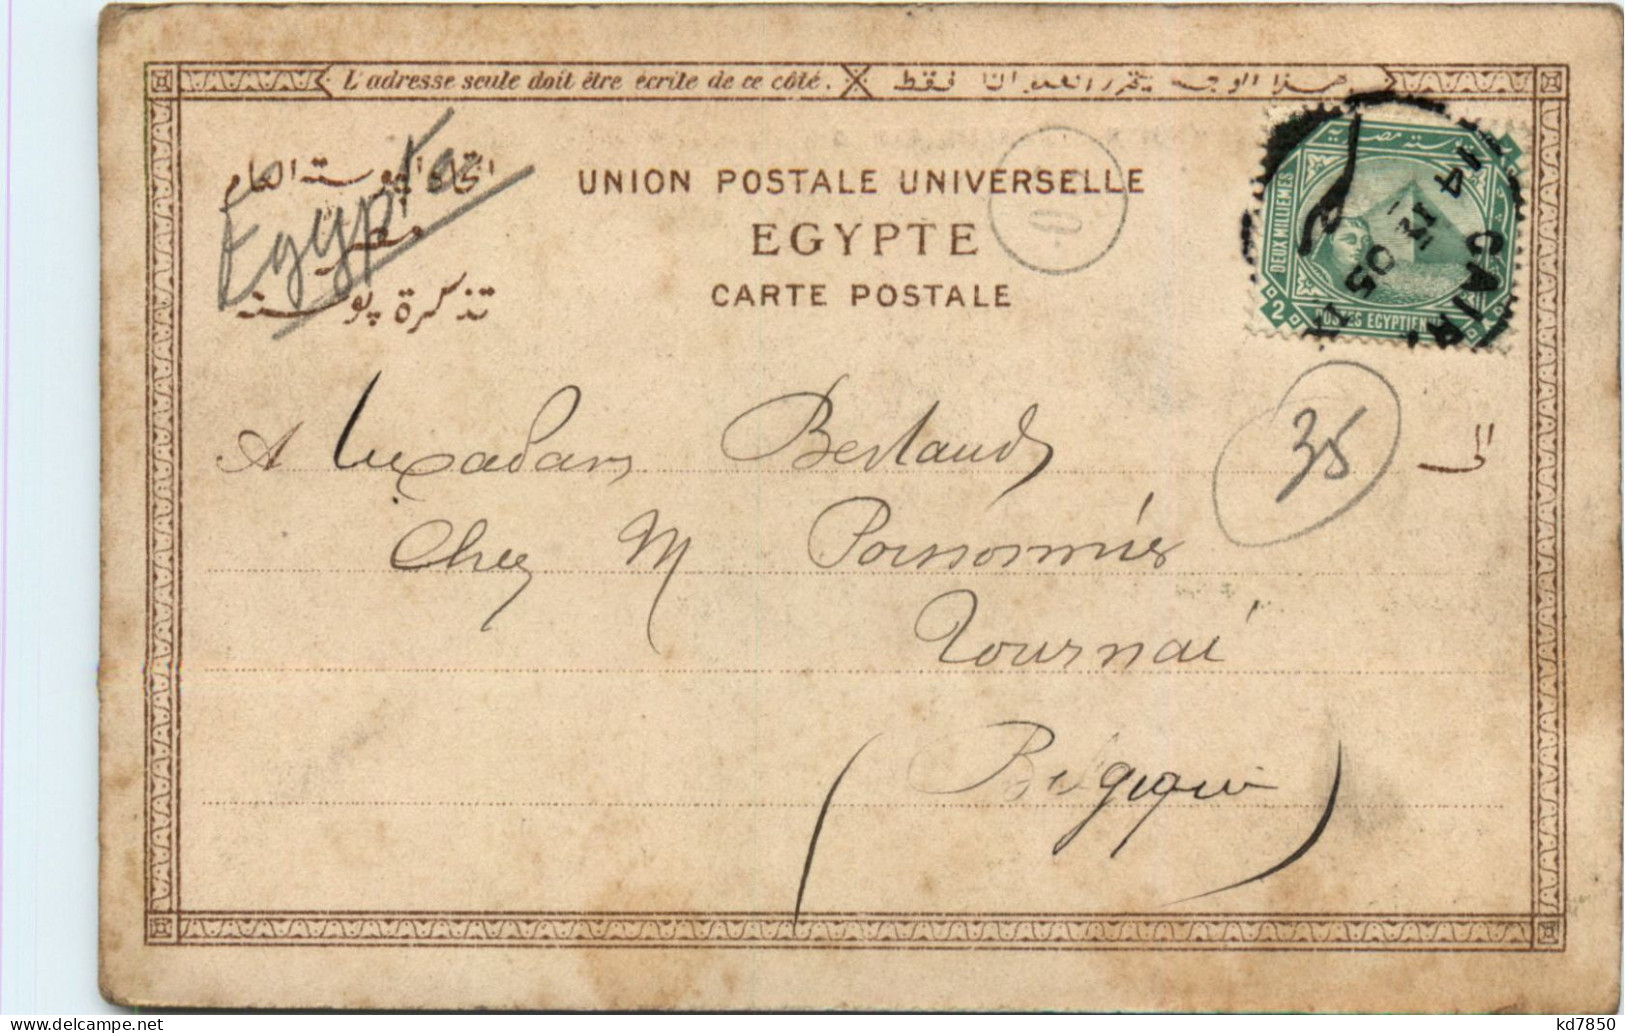 L'adresse seule doit être écrite de ce côté.
هذا الوجه يتحرر العنوان فقط
اتحاد البوسته العام
مصر
تذكرة بوسته
Egypte
UNION POSTALE UNIVERSELLE
EGYPTE
CARTE POSTALE
مصرية
DEUX MILLIEMES
2
POSTES EGYPTIENNES
CAIRO
14
IX 05
A Madame
35
الى
Chez M
Tournai
(Belgique)
kd7850